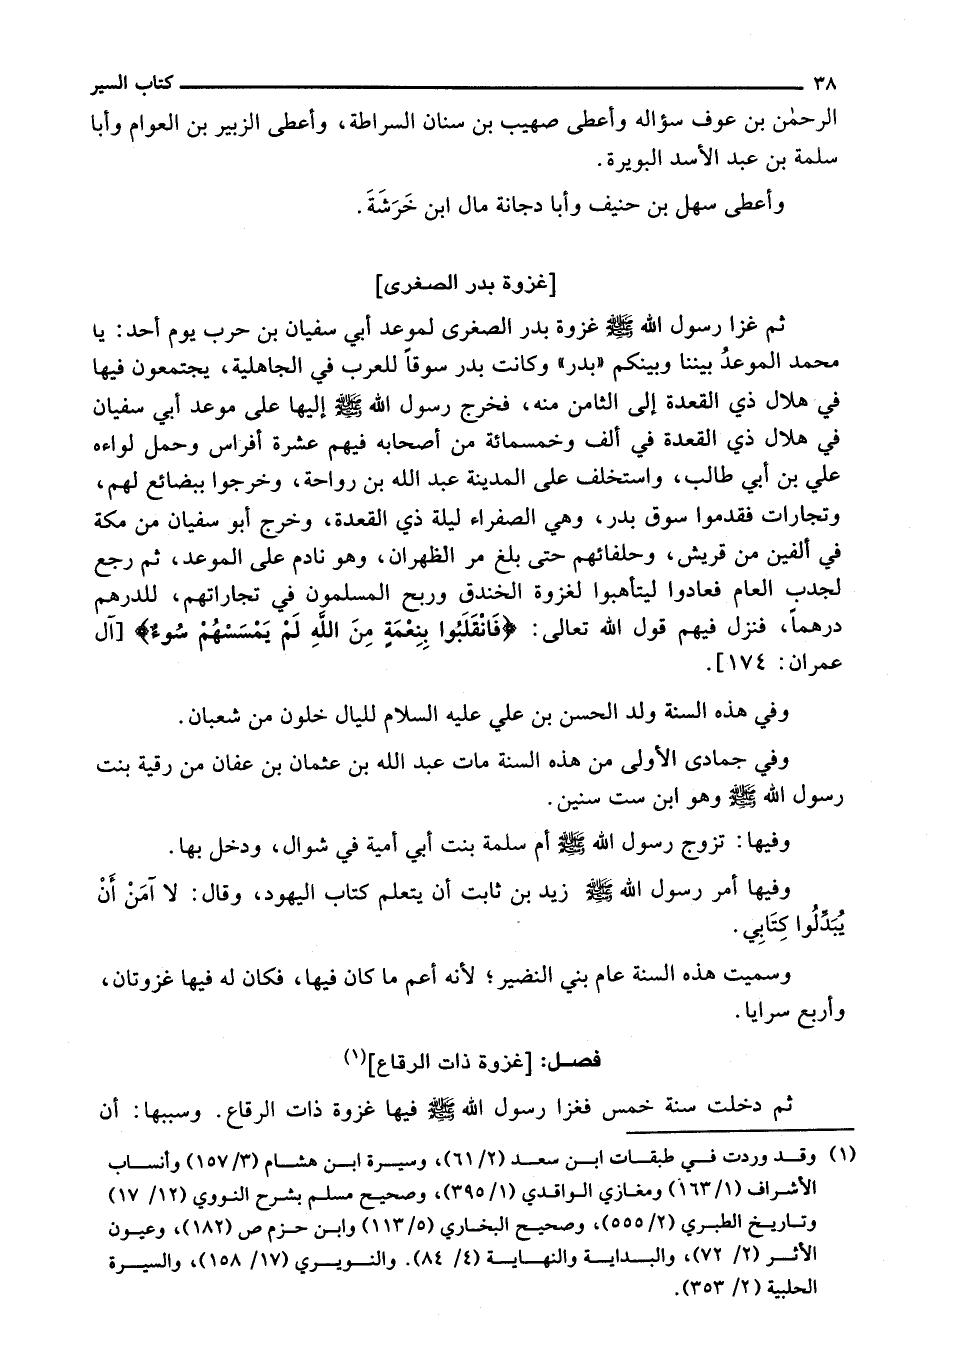 ٣٨ كتاب السير
الرحمٰن بن عوف سؤاله وأعطى صهيب بن سنان السراطة، وأعطى الزبير بن العوام وأبا
سلمة بن عبد الأسد البويرة.
وأعطى سهل بن حنيف وأبا دجانة مال ابن خَرَشَةَ.
[غزوة بدر الصغرى]
ثم غزا رسول الله ﷺ غزوة بدر الصغرى لموعد أبي سفيان بن حرب يوم أحد: يا
محمد الموعدُ بيننا وبينكم «بدر» وكانت بدر سوقاً للعرب في الجاهلية، يجتمعون فيها
في هلال ذي القعدة إلى الثامن منه، فخرج رسول الله ﷺ إليها على موعد أبي سفيان
في هلال ذي القعدة في ألف وخمسمائة من أصحابه فيهم عشرة أفراس وحمل لواءه
علي بن أبي طالب، واستخلف على المدينة عبد الله بن رواحة، وخرجوا ببضائع لهم،
وتجارات فقدموا سوق بدر، وهي الصفراء ليلة ذي القعدة، وخرج أبو سفيان من مكة
في ألفين من قريش، وحلفائهم حتى بلغ مر الظهران، وهو نادم على الموعد، ثم رجع
لجدب العام فعادوا ليتأهبوا لغزوة الخندق وربح المسلمون في تجاراتهم، للدرهم
درهماً، فنزل فيهم قول الله تعالى: ﴿فَانْقَلَبُوا بِنِعْمَةٍ مِنَ اللَّهِ لَمْ يَمْسَسْهُمْ سُوءٌ﴾ [آل
عمران: ١٧٤].
وفي هذه السنة ولد الحسن بن علي عليه السلام لليال خلون من شعبان.
وفي جمادى الأولى من هذه السنة مات عبد الله بن عثمان بن عفان من رقية بنت
رسول الله ﷺ وهو ابن ست سنين.
وفيها: تزوج رسول الله ﷺ أم سلمة بنت أبي أمية في شوال، ودخل بها.
وفيها أمر رسول الله ﷺ زيد بن ثابت أن يتعلم كتاب اليهود، وقال: لا آمَنْ أَنْ
يُبَدِّلُوا كِتَابِي.
وسميت هذه السنة عام بني النضير؛ لأنه أعم ما كان فيها، فكان له فيها غزوتان،
وأربع سرايا.
فصل: [غزوة ذات الرقاع](١)
ثم دخلت سنة خمس فغزا رسول الله ﷺ فيها غزوة ذات الرقاع. وسببها: أن
(١) وقد وردت في طبقات ابن سعد (٢/ ٦١)، وسيرة ابن هشام (٣/ ١٥٧) وأنساب
الأشراف (١/ ١٦٣) ومغازي الواقدي (١/ ٣٩٥)، وصحيح مسلم بشرح النووي (١٢/ ١٧)
وتاريخ الطبري (٢/ ٥٥٥)، وصحيح البخاري (٥/ ١١٣) وابن حزم ص (١٨٢)، وعيون
الأثر (٢/ ٧٢)، والبداية والنهاية (٤/ ٨٤). والنويري (١٧/ ١٥٨)، والسيرة
الحلبية (٢/ ٣٥٣).